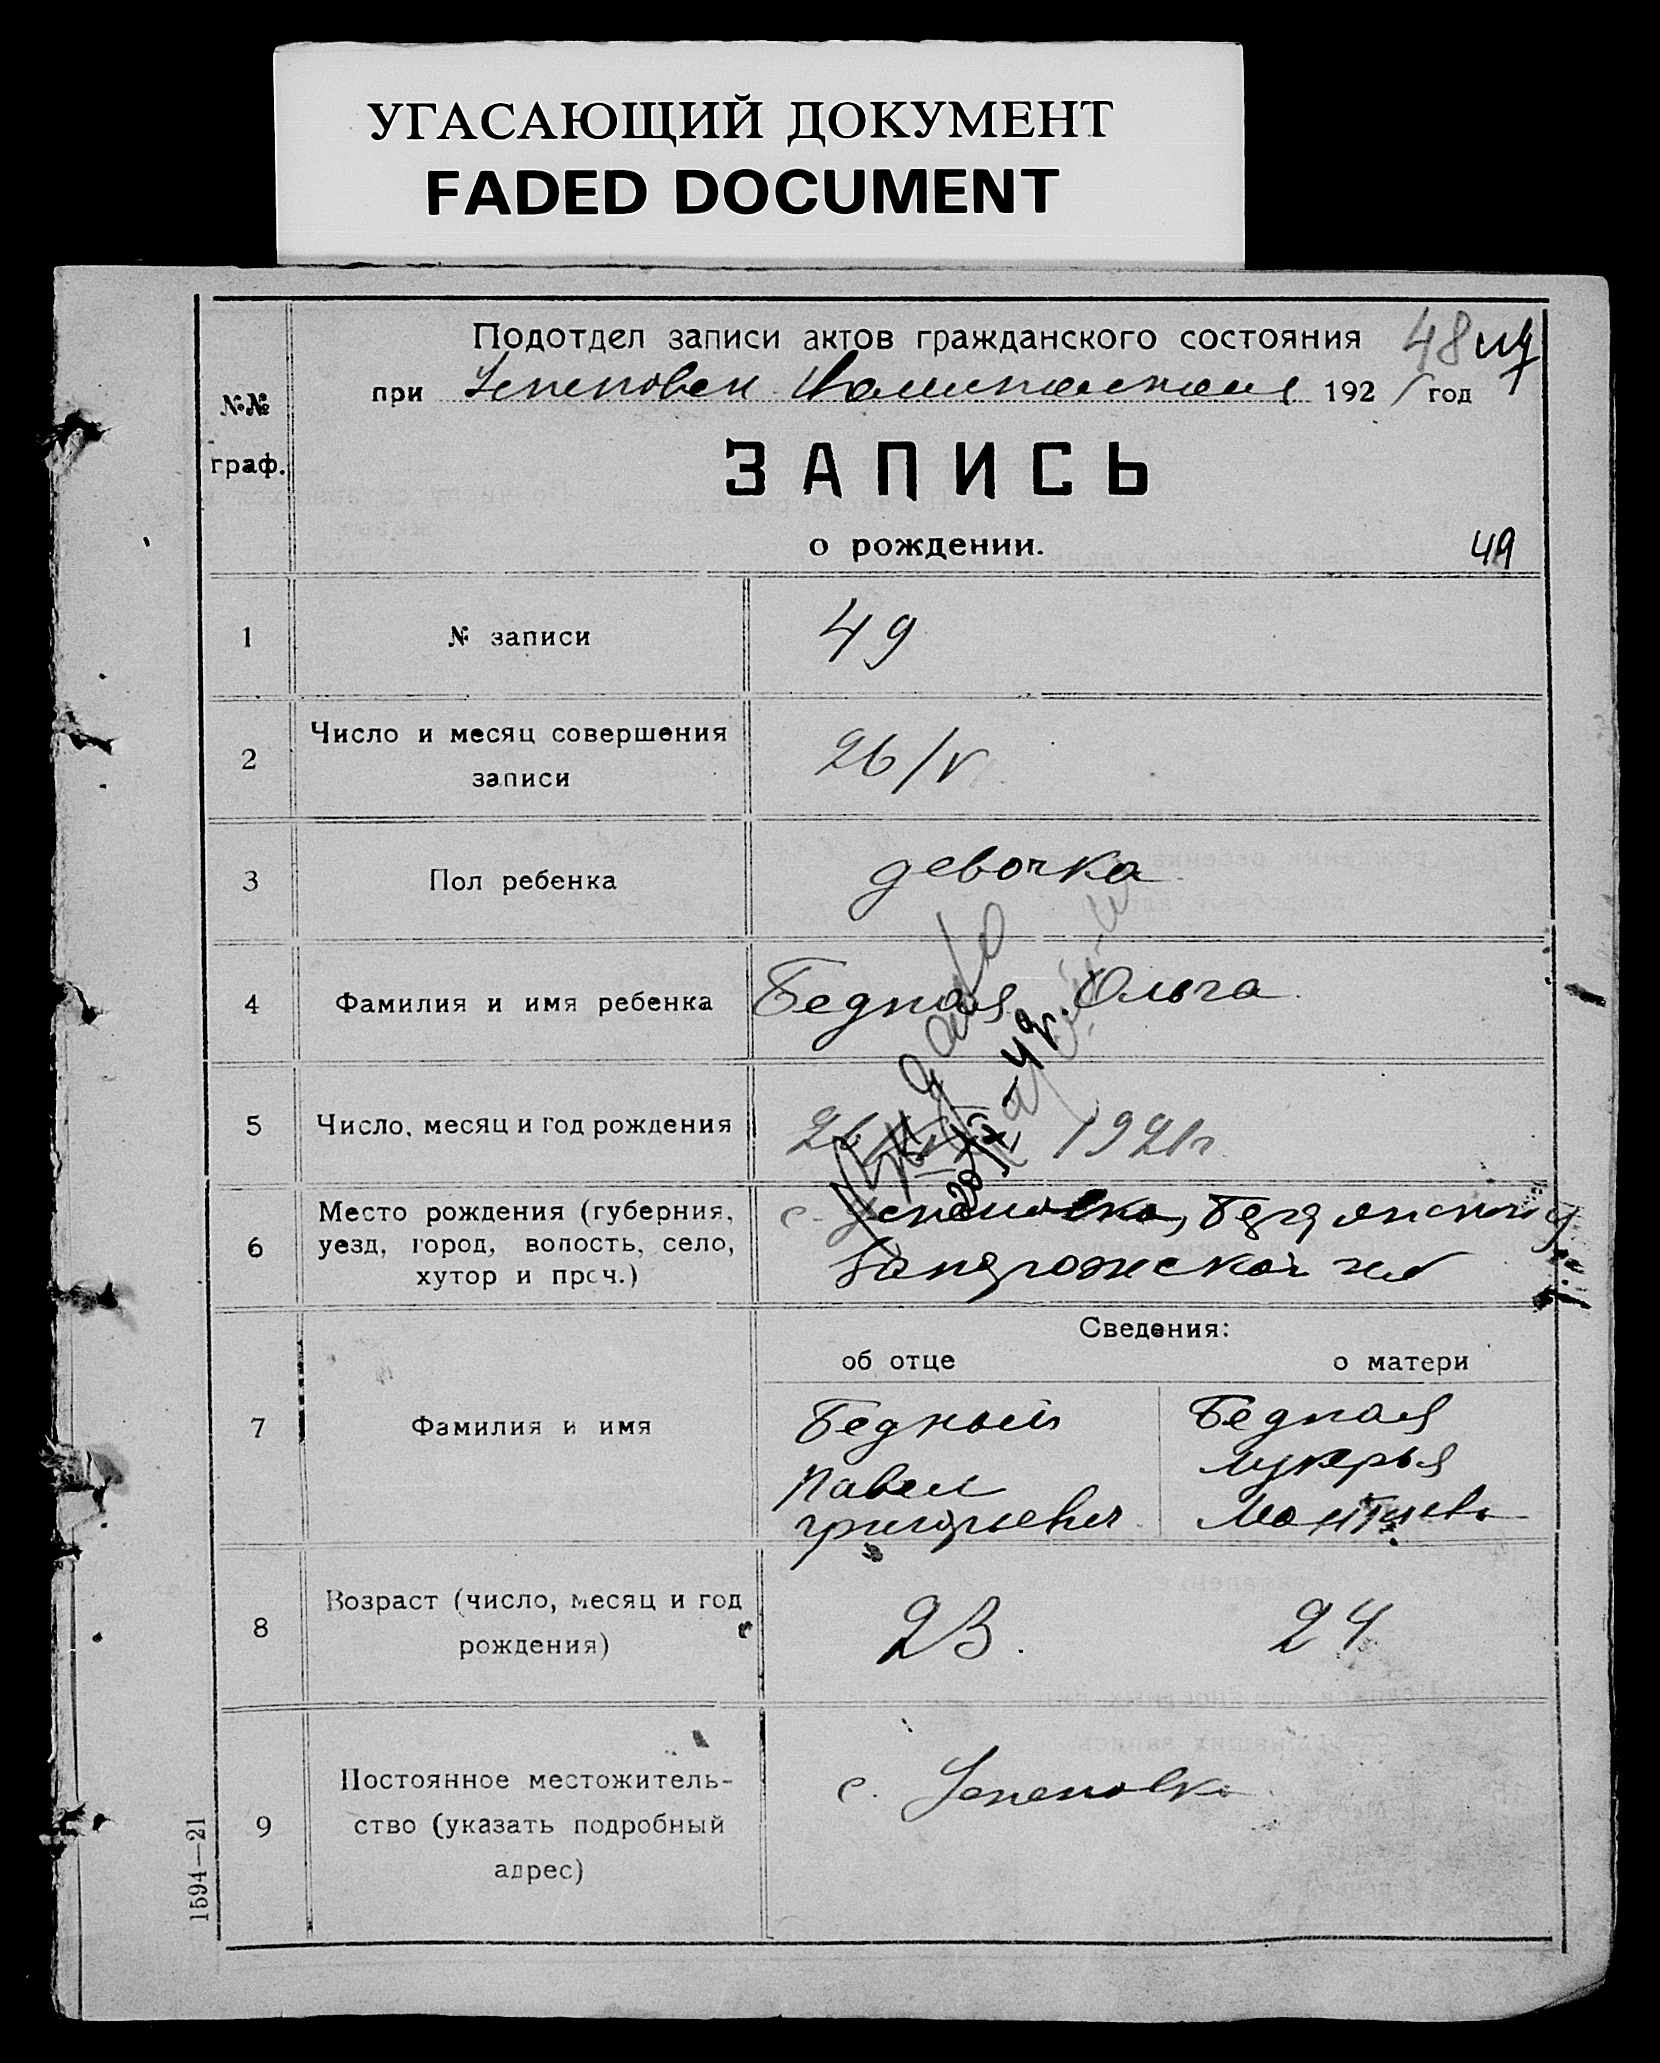 УГАСАЮЩИЙ ДОКУМЕНТ
FADED DOCUMENT
Подотдел записи актов гражданского состояния
48
при 192 1 год
№№
граф.
ЗАПИСЬ
о рождении.
49
1 № записи 49
2 Число и месяц совершения
записи
26/V
3 Пол ребенка девочка
4 Фамилия и имя ребенка Бедная Ольга
5 Число, месяц и год рождения 1921 г
6 Место рождения (губерния,
уезд, город, волость, село,
хутор и проч.)
с.
Запорожской губ
Сведения:
об отце о матери
7 Фамилия и имя
Бедный
Павел
Григорьевич
Бедная
Лукерья
8 Возраст (число, месяц и год
рождения)
23. 24
9 Постоянное местожитель-
ство (указать подробный
адрес)
с.
1594—21